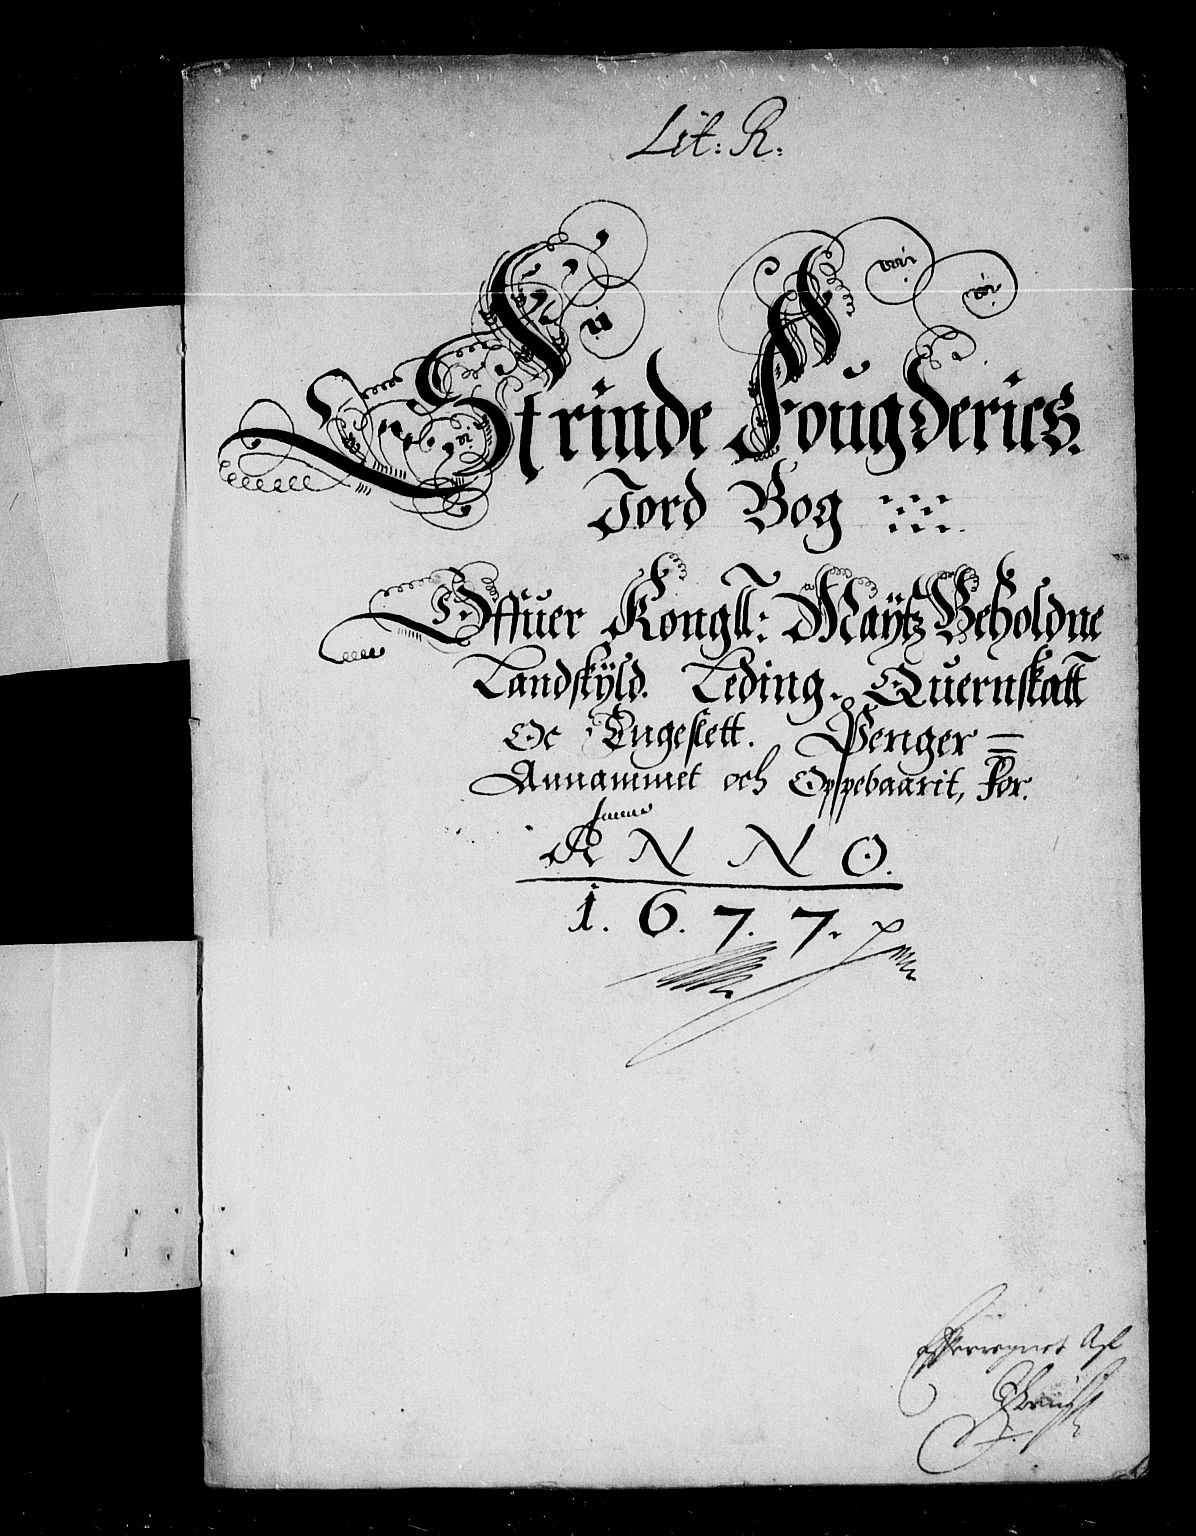 Lit: R:
Strinde Fougderies.
Jord Bog
Offuer Kongll: Maÿtz Beholdne
Landskÿld. Leding. Quernskatt
Oc Engeslett. Penger
Annammet och Oppebaarit, For.
ANNO.
1.6.7.7.
Efterregnet Af